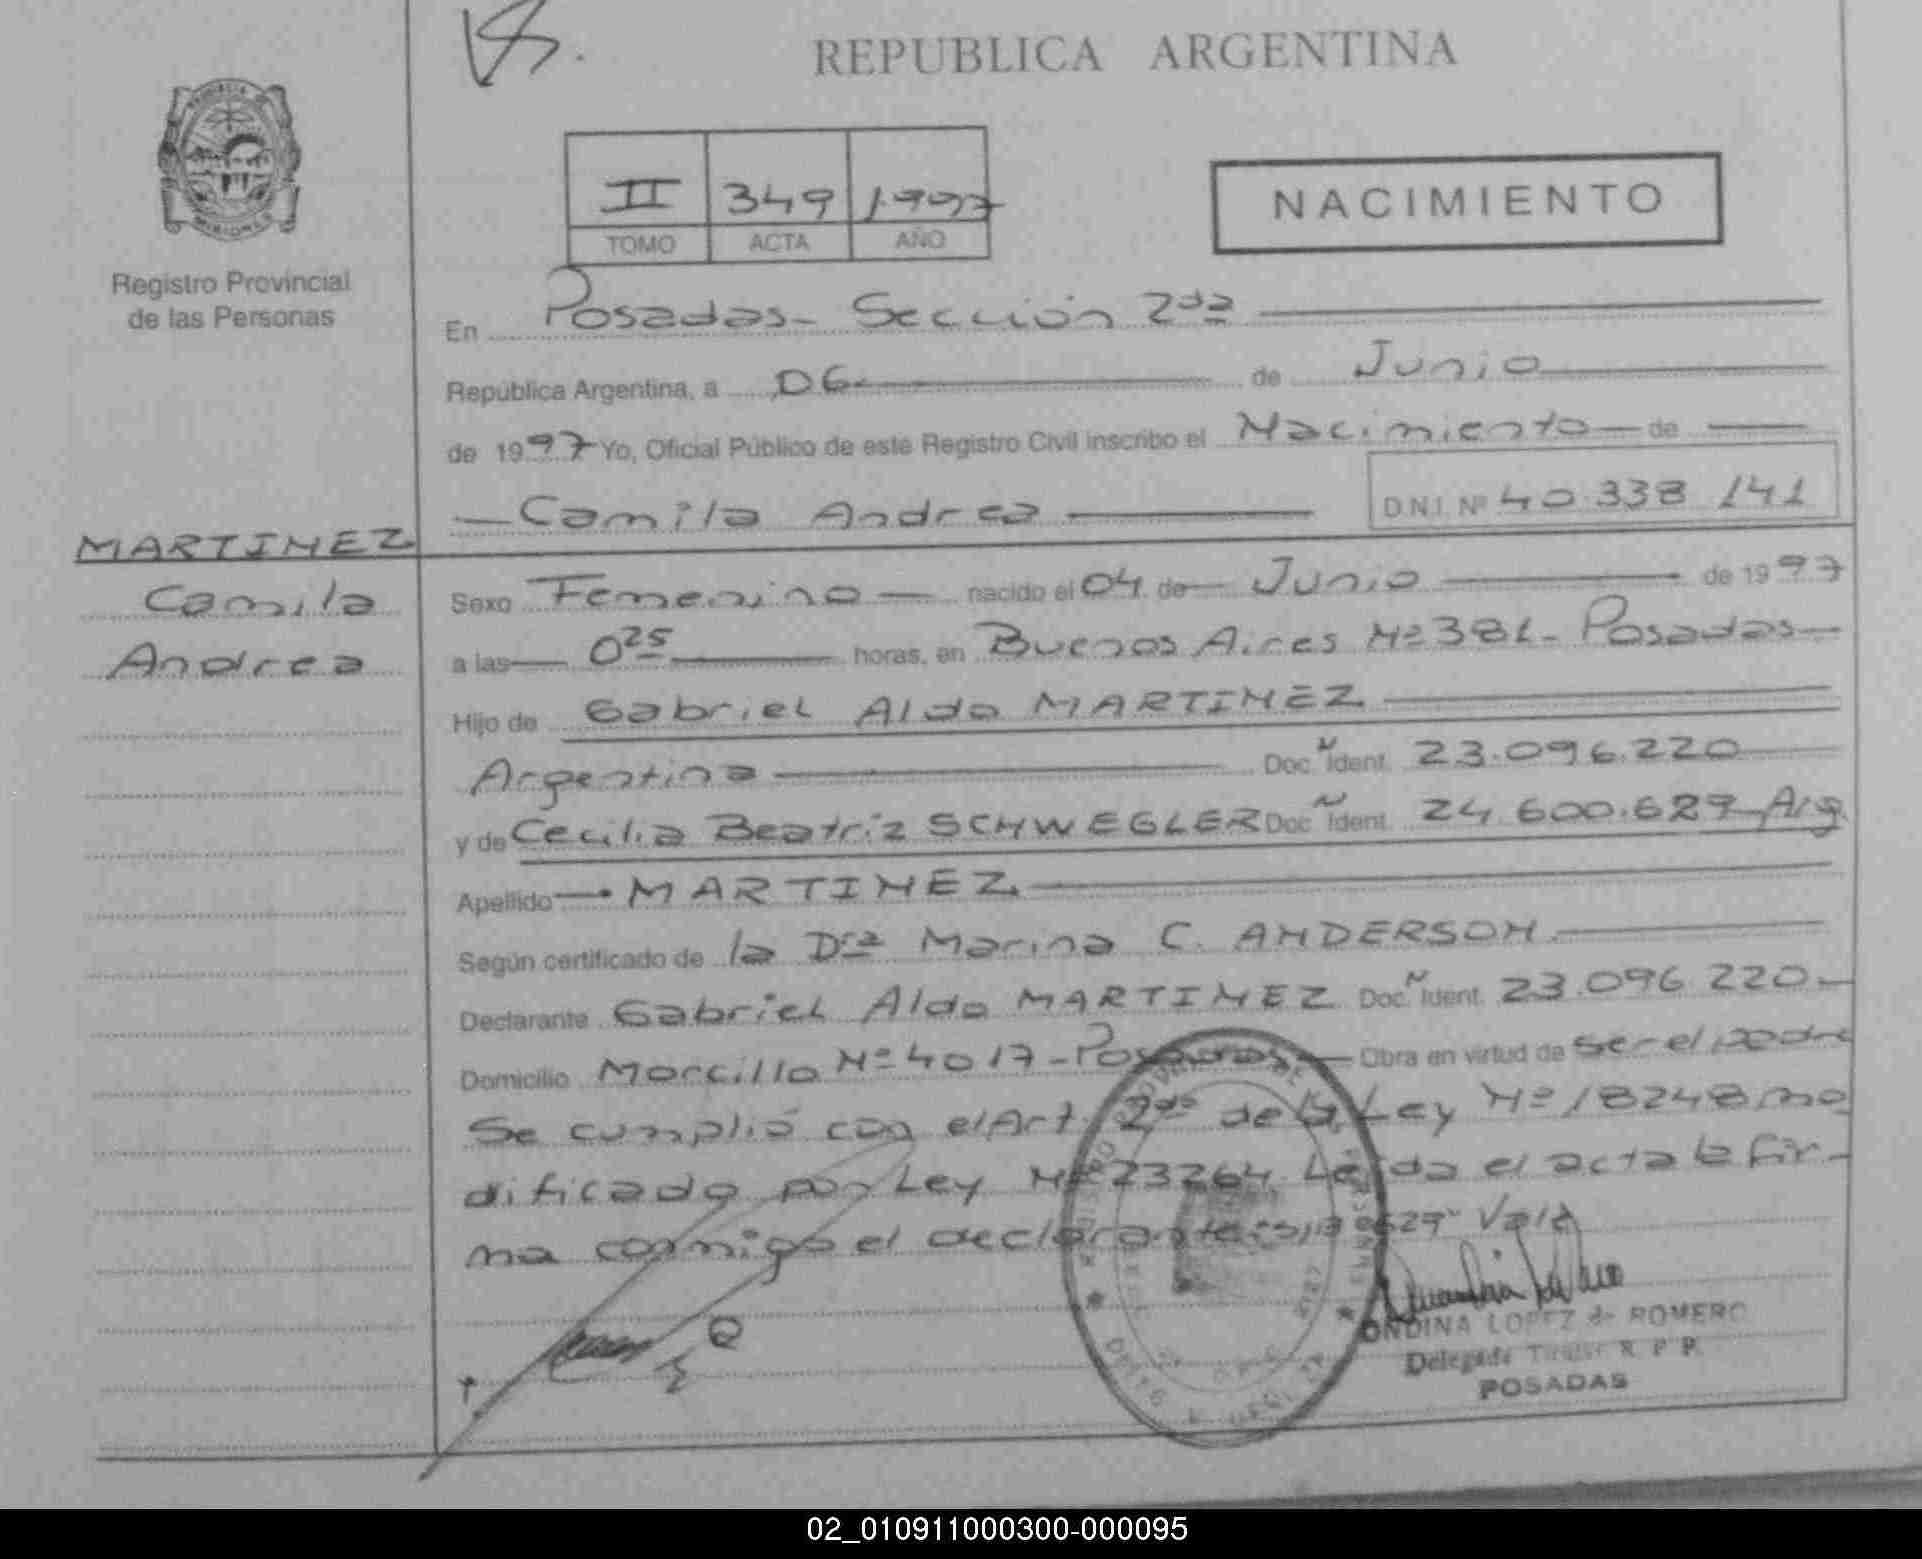 REPUBLICA ARGENTINA
II 349 1.997
TOMO ACTA AÑO
NACIMIENTO
Registro Provincial
de las Personas
En Posadas - Sección 2da
República Argentina, a 06 de Junio
de 1997 Yo, Oficial Público de este Registro Civil inscribo el Nacimiento de
Camila Andrea D.N.I. Nº 40.338 141
MARTINEZ
Camila
Andrea
Sexo Femenino nacido el 04 de Junio de 1997
a las 0 25 horas, en Buenos Aires Nº 381 - Posadas
Hijo de Gabriel Aldo MARTINEZ
Argentina Doc. Ident. 23.096.220
y de Cecilia Beatriz SCHWEGLER Doc. Ident. 24.600.629 Arg.
Apellido MARTINEZ
Según certificado de la Dra Marina C. ANDERSON
Declarante Gabriel Aldo MARTINEZ Doc. Ident. 23.096 220
Domicilio Morcillo Nº 4017 - Posadas Obra en virtud de ser el padre
Se cumplió con el Art. 2do de la Ley Nº 18248 mo
dificado por Ley Nº 23264 Leída el acta la fir-
ma conmigo el declarante 629" Vale
ONDINA LOPEZ de ROMERO
Delegada Titular R. P. P.
POSADAS
02_010911000300-000095